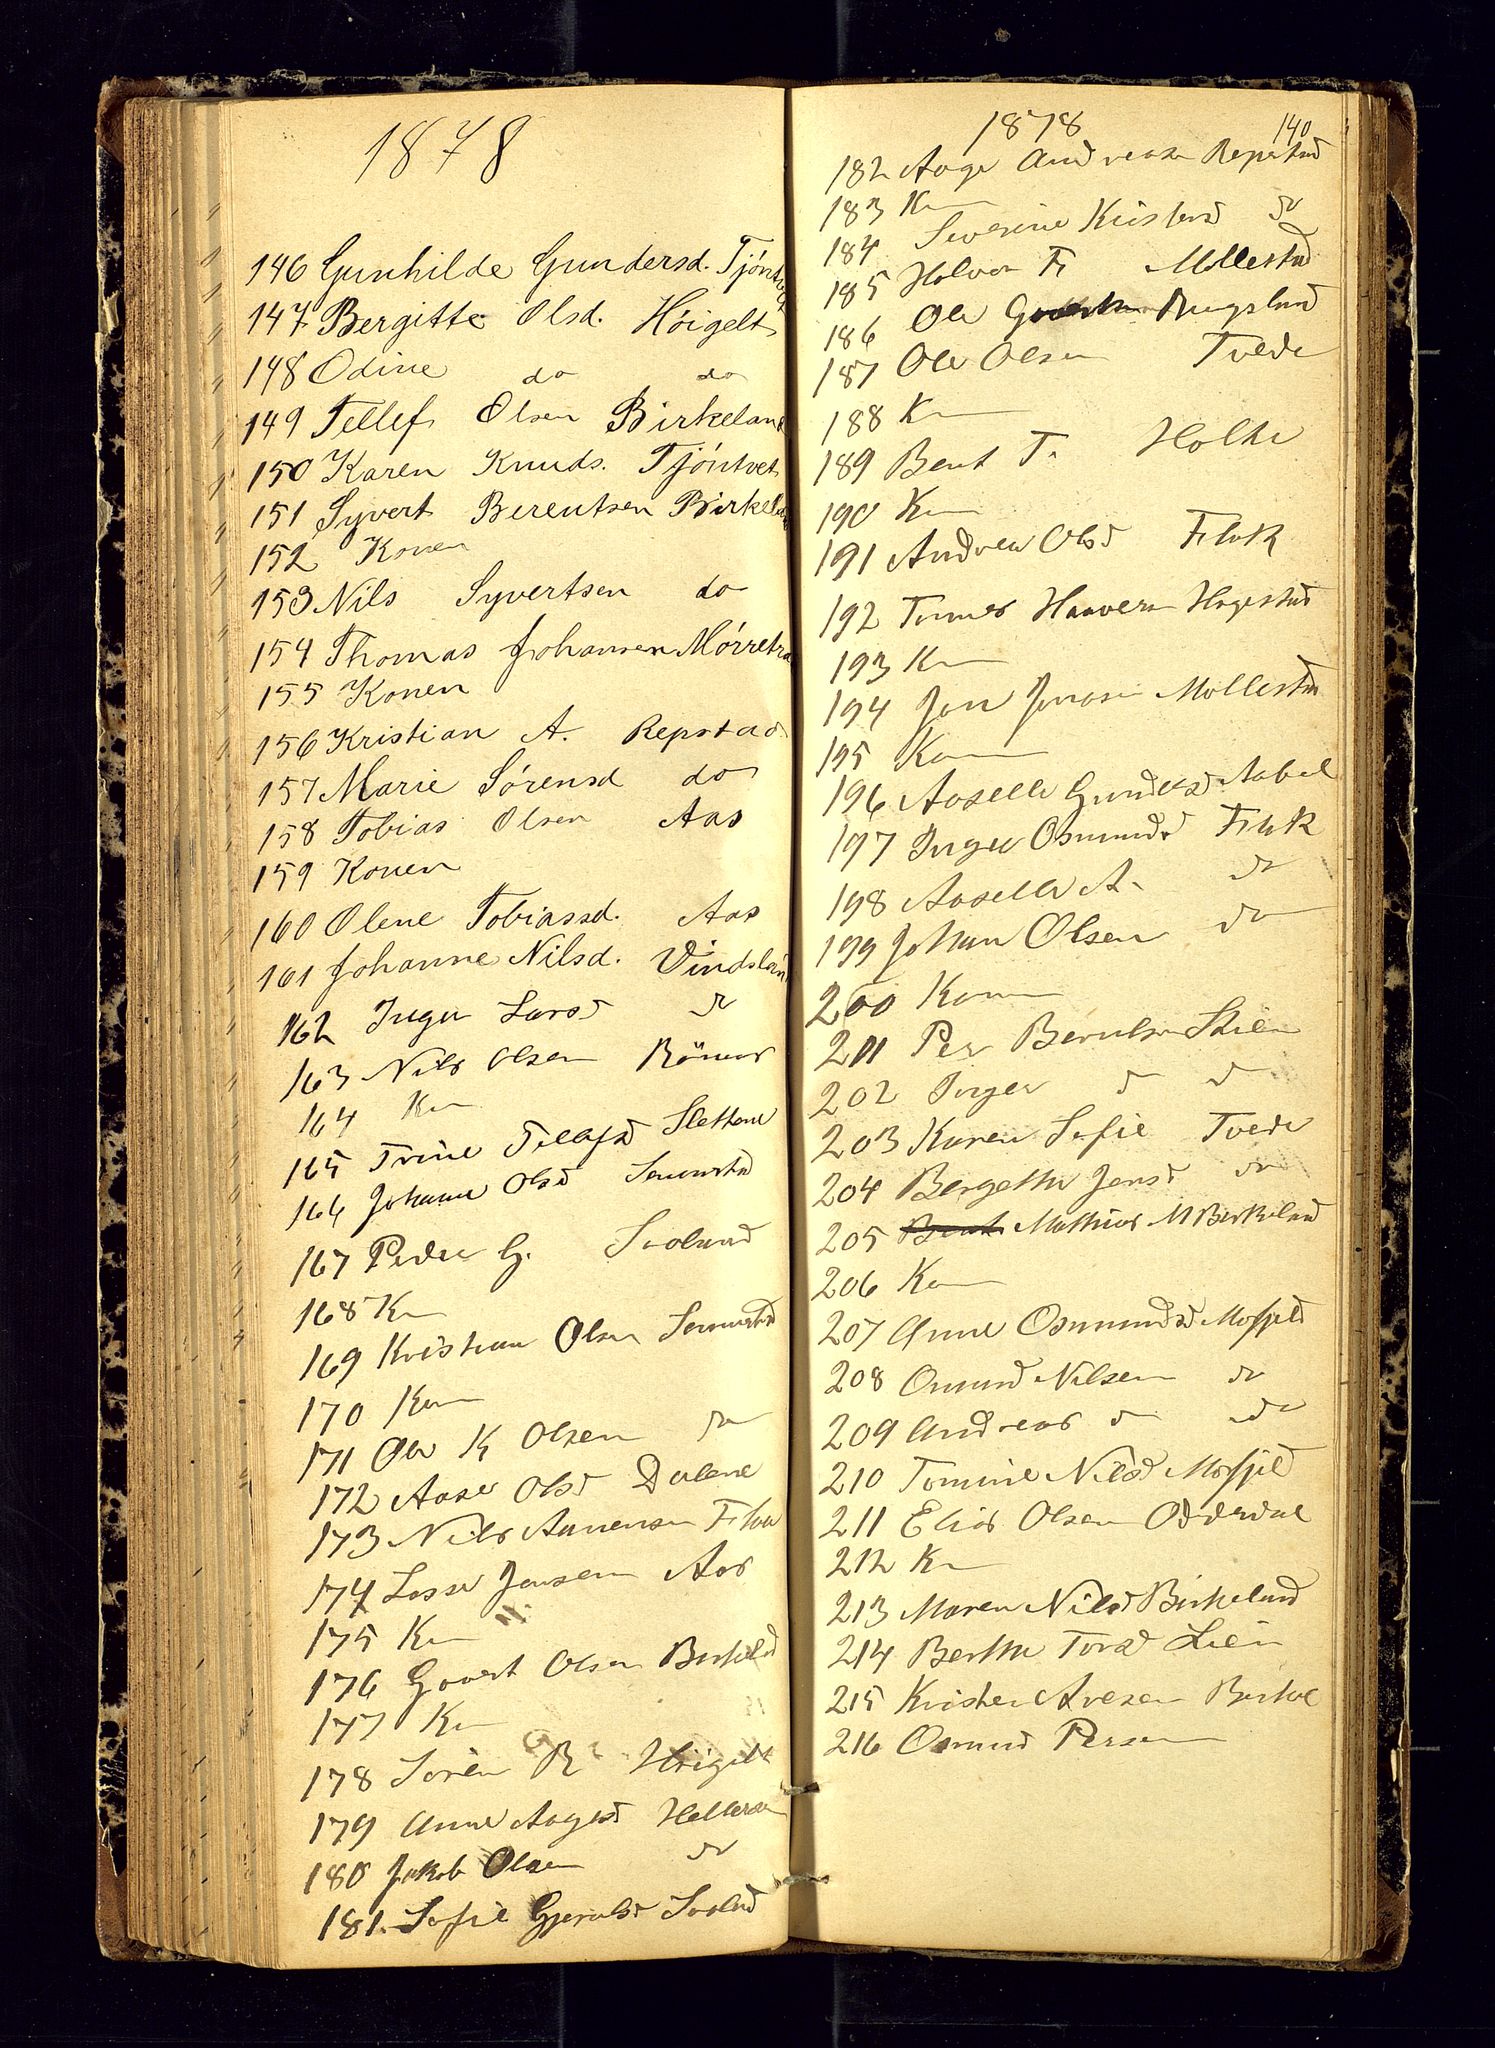 1878
146 Gunhilde Gundersd. Tjöntvet
147 Bergitte Olsd. Höigelt
148 Odine do do
149 Tellef Olsen Birkeland
150 Karen Knuds. Tjöntvet
151 Syvert Berentsen Birkeland
152 Konen
153 Nils Syvertsen do
154 Thomas Johansen
155 Konen
156 Kristian A. Repstad
157 Marie Sörensd do
158 Tobias Olsen Aas
159 Konen
160 Olene Tobiassd. Aas
161 Johanne Nilsd. Vindsland
162 Inger Larsd do
163 Nils Olsen
164 Kn
165 Trine Tellefsd Slettene
166 Johanne Olsd Senumstad
167 Peder G. Svaland
168 Kn
169 Kristian Olsen Senumstad
170 Kon
171 Ole K Olsen do
172 Aase Olsd Dalene
173 Nils Aanensen
174 Lasse Jensen Aas
175 Kn
176 Govert Olsen Birkeld
177 Kn
178 Sören R Höigelt
179 Anne Aagesd
180 Jakob Olsen do
181 Sofie Gjeruldsd
1878
140
182 Aage Andreasen Repstad
183 Kn
184 Severine Kristensd do
185 Halvor F. Mollestad
186 Ole Rugsland
187 Ole Olsen Tvede
188 Kn
189 Bent T. Holte
190 Kn
191 Andrea Olsd Flak
192 Tomas Haaversen Hagestad
193 Kn
194 Jon Jonasen Mollestad
195 Kon
196 Aaselle Gundersd Aabel
197 Inger Osmundsd Flak
198 Aaselle A. do
199 Johan Olsen do
200 Kon
201 Per Berntsen
202 Inger d do
203 Karen Sofie Tvede
204 Bergethe Jensd do
205 Bent Mathias M Birkeland
206 Kon
207 Anne Osmundsd Mosfjeld
208 Omund Nilsen do
209 Andreas d do
210 Tomine Nilsd Mosfjeld
211 Elias Olsen Odderdal
212 Kn
213 Maren Nilsd Birkeland
214 Berthe Torsd Lien
215 Kristen Avesen
216 Osmund Persen